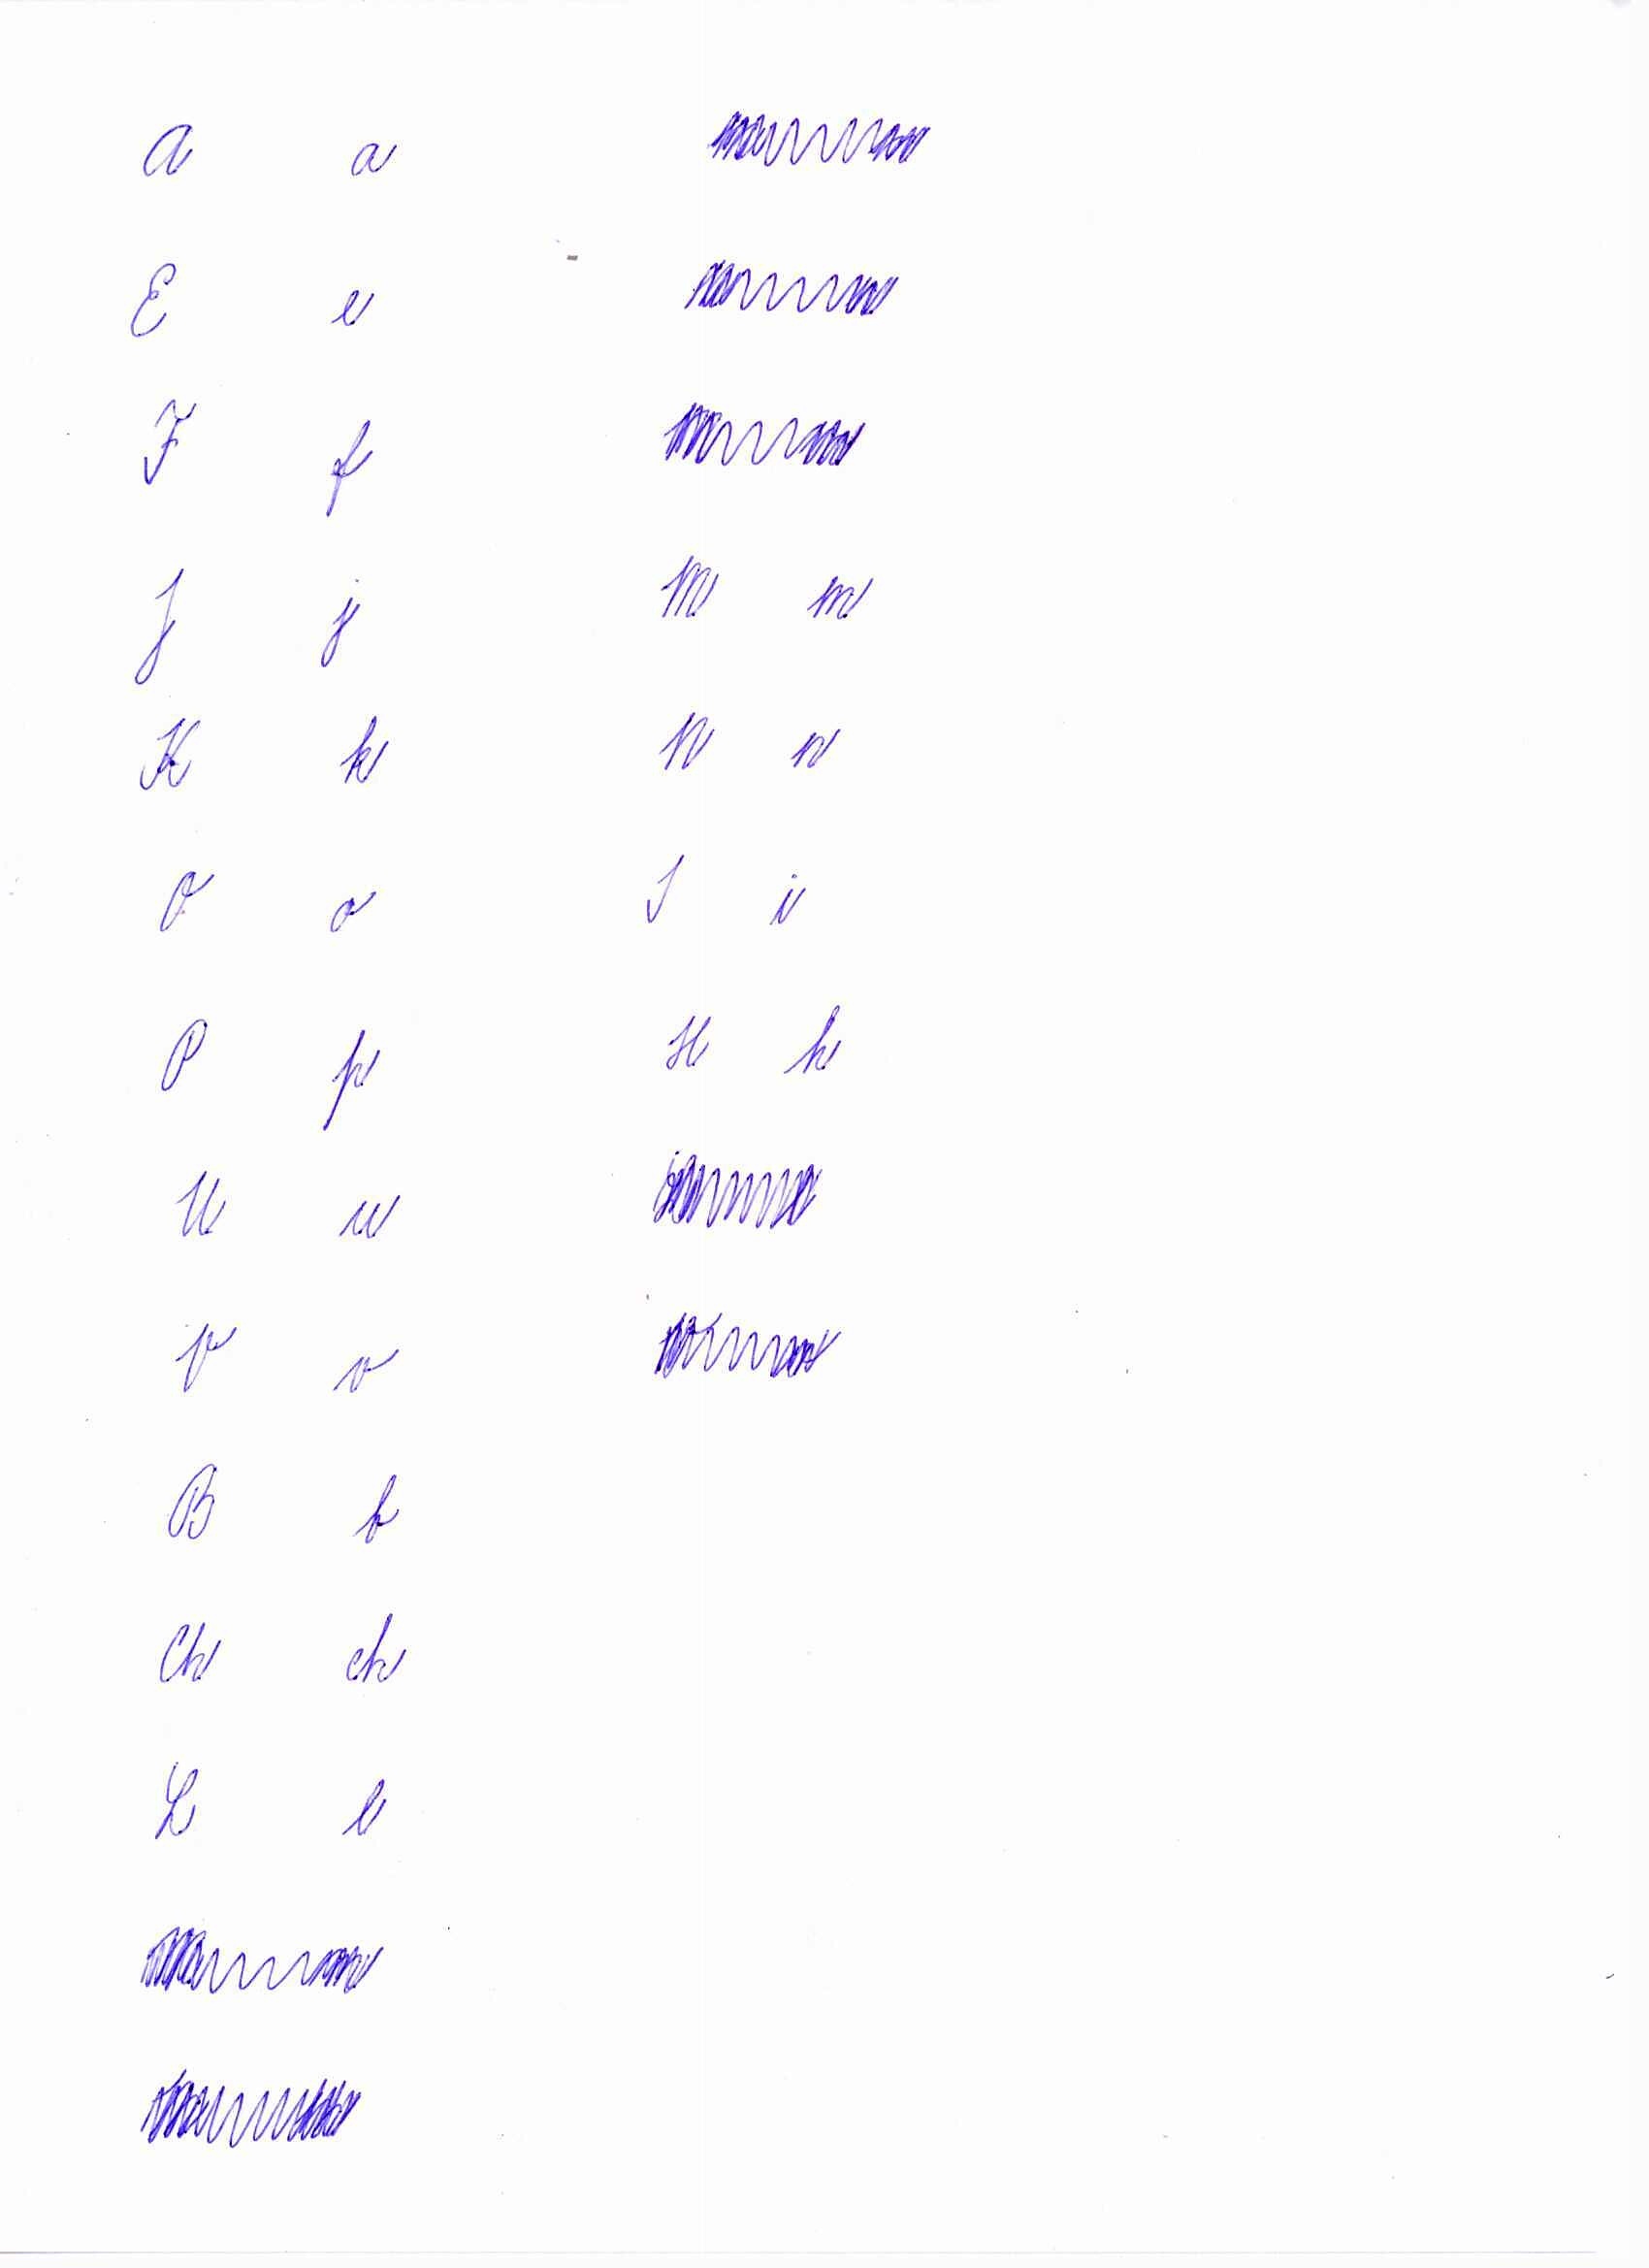 A a
E e
F f
J j
K k
O o
P p
U u
V v
B b
Ch ch
L l
M m
N n
I i
H h